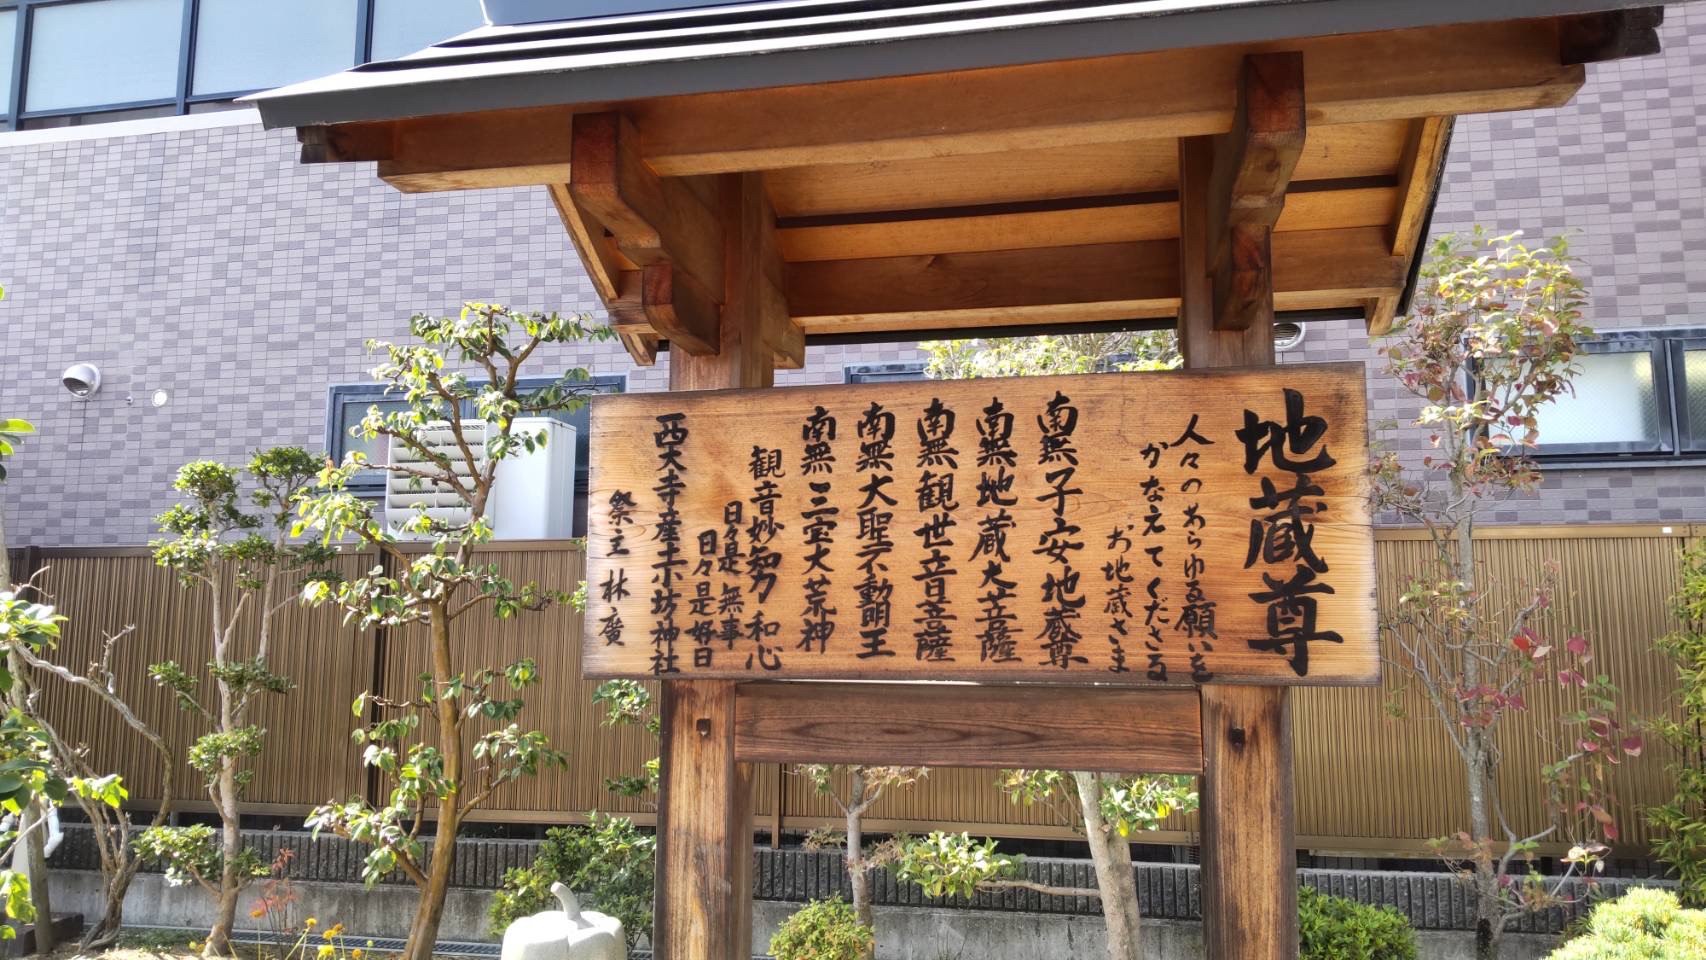 地蔵尊
人々のあらゆる願いを
かなえてくださる
お地蔵さま
南無子安地蔵尊
南無地蔵大菩薩
南無観世音菩薩
南無大聖不動明王
南無三宝大荒神
観音妙智力 和心
日々是無事
日々是好日
西大寺産土坊神社
祭主 林廣